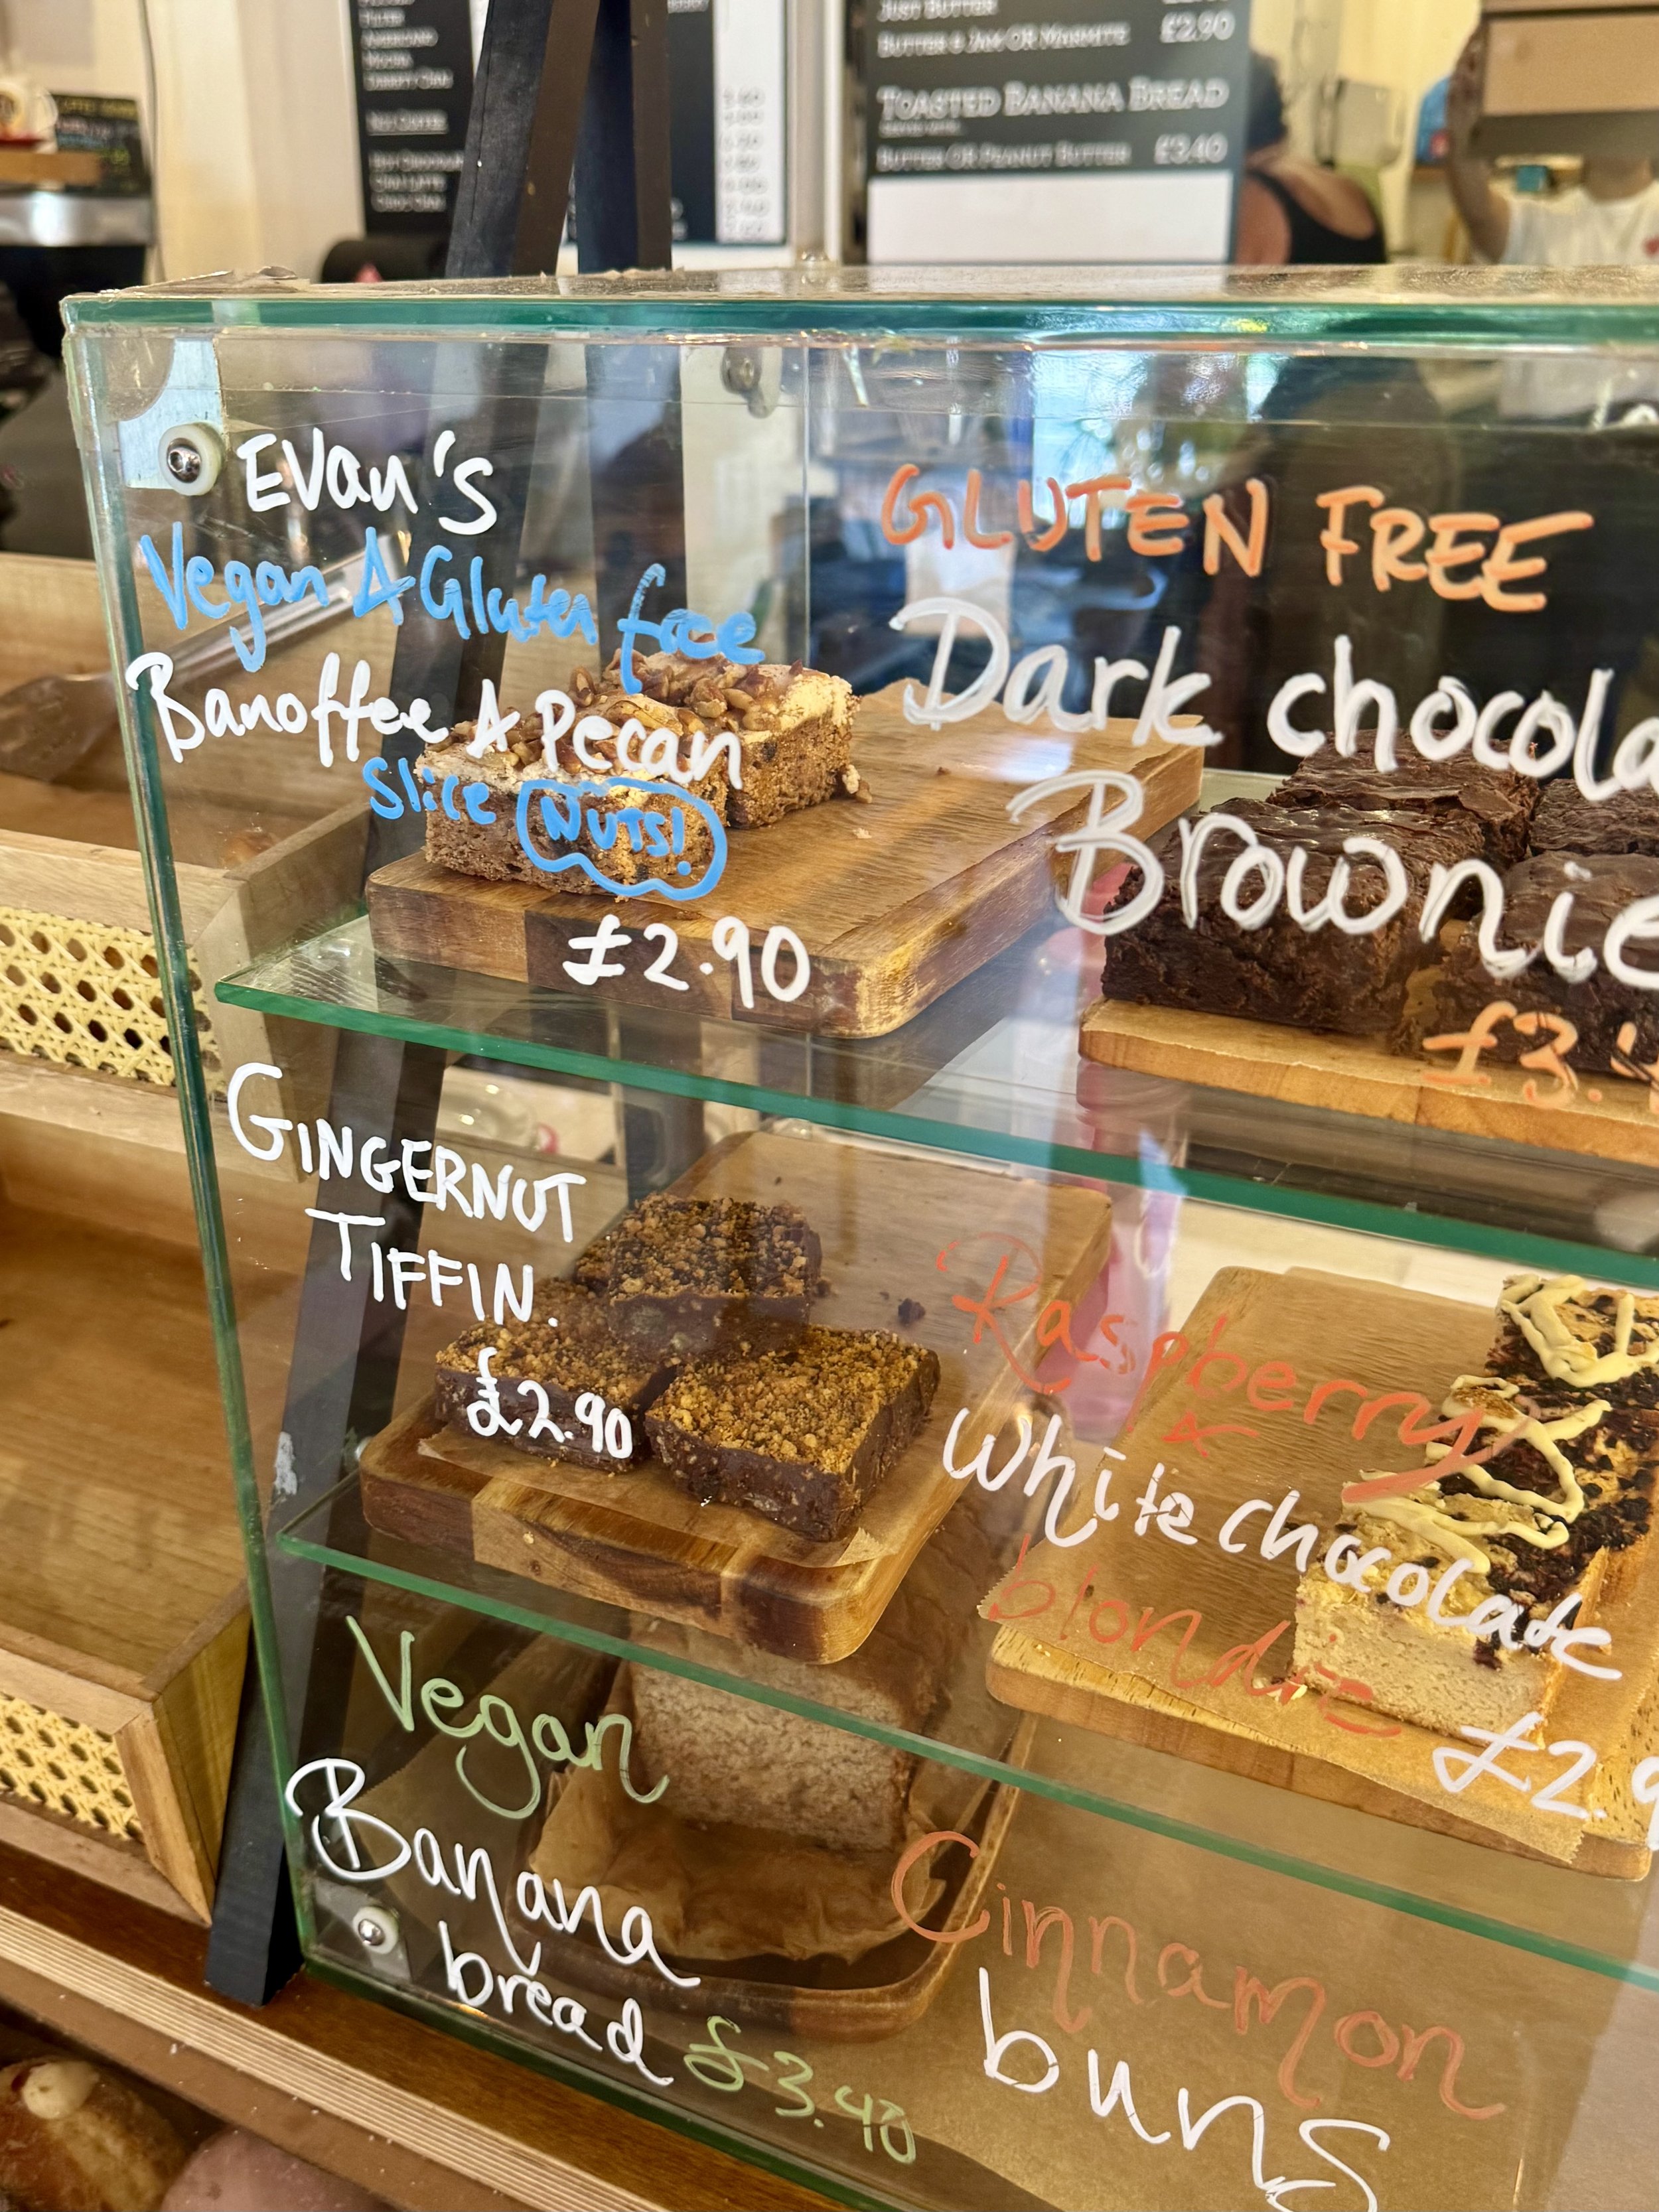 JUST BUTTER
BUTTER & JAM OR MARMITE £2.90
TOASTED BANANA BREAD
BUTTER OR PEANUT BUTTER £3.40
EVan's
Vegan & Gluten free
Banoffee & Pecan
Slice NUTS!
£2.90
GLUTEN FREE
Dark chocola
Brownie
£3.4
GINGERNUT
TIFFIN.
£2.90
Raspberry
&
White chocolate
blondie
£2.9
Vegan
Banana
bread £3.40
Cinnamon
buns